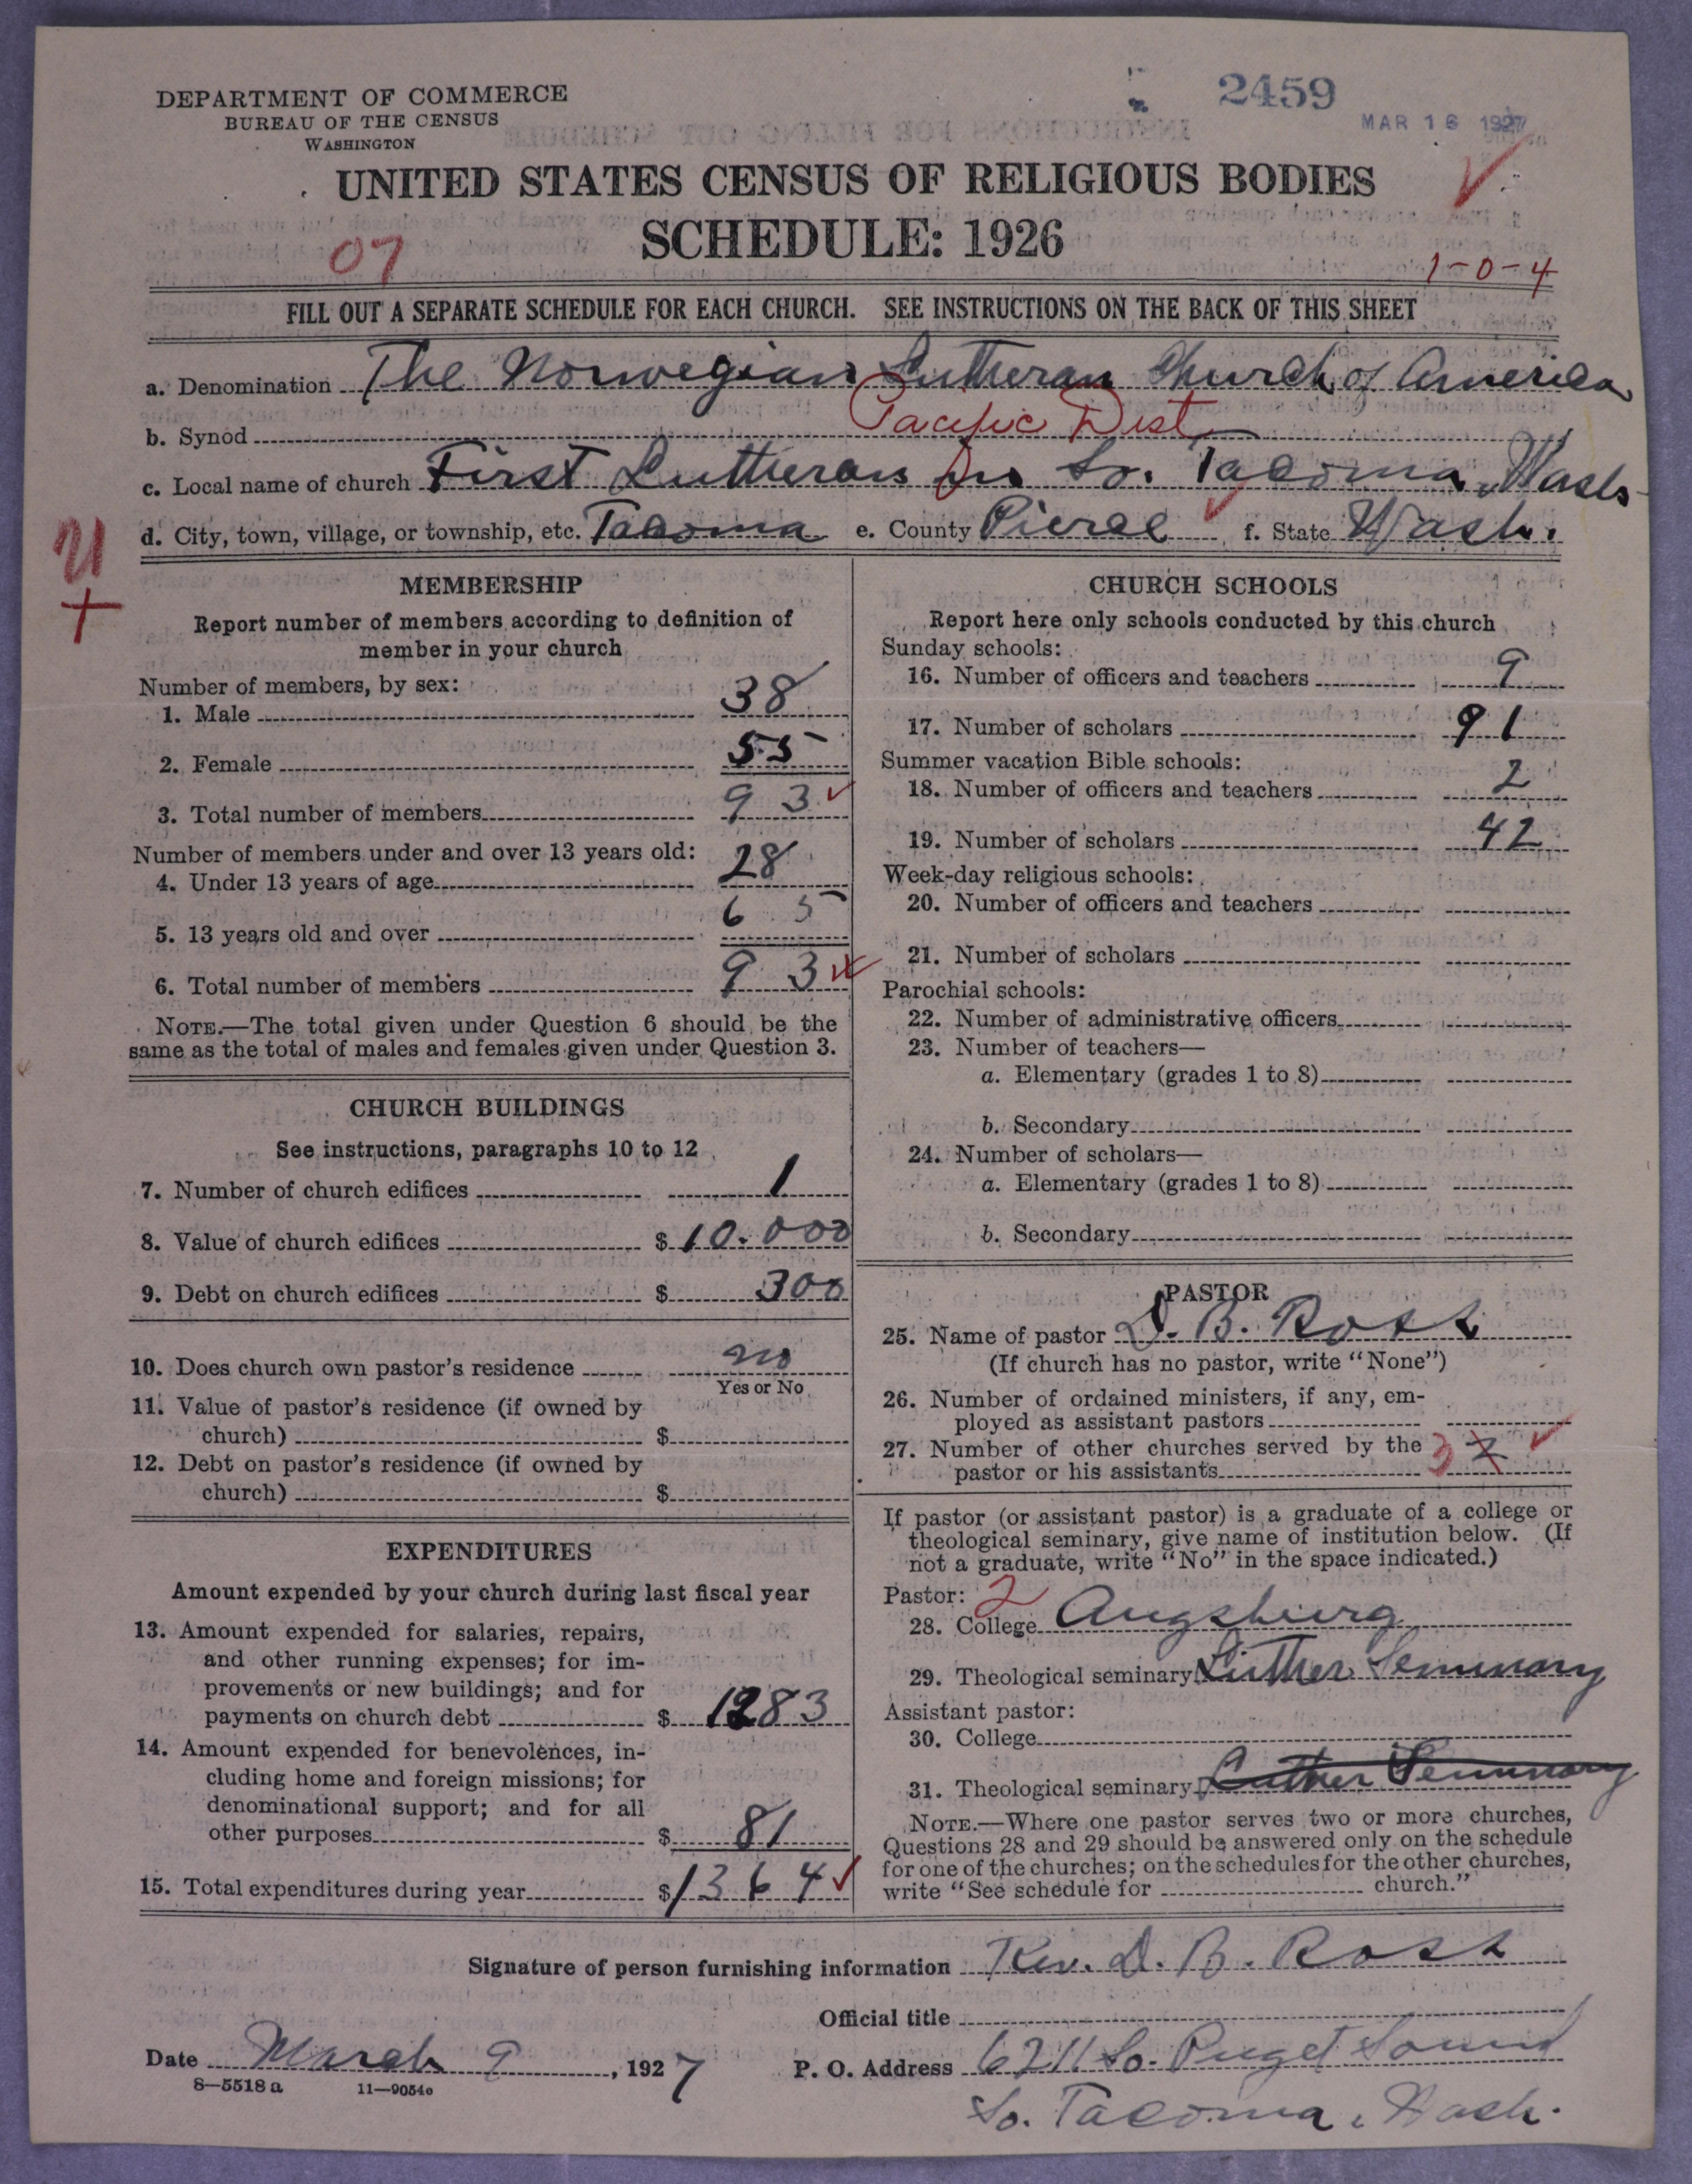 DEPARTMENT OF COMMERCE
BUREAU OF THE CENSUS
WASHINGTON
2459
MAR 16 1927
UNITED STATES CENSUS OF RELIGIOUS BODIES
SCHEDULE: 1926
07
1-0-4
FILL OUT A SEPARATE SCHEDULE FOR EACH CHURCH. SEE INSTRUCTIONS ON THE BACK OF THIS SHEET
a. Denomination The Norwegian Lutheran Church of America
b. Synod Pacific Dist
c. Local name of church First Lutheran in So. Tacoma, Wash
d. City, town, village, or township, etc. Tacoma e. County Pierce f. State Wash.
MEMBERSHIP
Report number of members according to definition of
member in your church
Number of members, by sex:
1. Male 38
2. Female 55
3. Total number of members 93
Number of members under and over 13 years old:
4. Under 13 years of age 28
5. 13 years old and over 65
6. Total number of members 93
NOTE.—The total given under Question 6 should be the
same as the total of males and females given under Question 3.
CHURCH BUILDINGS
See instructions, paragraphs 10 to 12
7. Number of church edifices 1
8. Value of church edifices $ 10.000
9. Debt on church edifices $ 300
10. Does church own pastor's residence no
Yes or No
11. Value of pastor's residence (if owned by
church) $
12. Debt on pastor's residence (if owned by
church) $
EXPENDITURES
Amount expended by your church during last fiscal year
13. Amount expended for salaries, repairs,
and other running expenses; for im-
provements or new buildings; and for
payments on church debt $ 1283
14. Amount expended for benevolences, in-
cluding home and foreign missions; for
denominational support; and for all
other purposes $ 81
15. Total expenditures during year $ 1364
CHURCH SCHOOLS
Report here only schools conducted by this church
Sunday schools:
16. Number of officers and teachers 9
17. Number of scholars 91
Summer vacation Bible schools:
18. Number of officers and teachers 2
19. Number of scholars 42
Week-day religious schools:
20. Number of officers and teachers
21. Number of scholars
Parochial schools:
22. Number of administrative officers
23. Number of teachers—
a. Elementary (grades 1 to 8)
b. Secondary
24. Number of scholars—
a. Elementary (grades 1 to 8)
b. Secondary
PASTOR
25. Name of pastor D. B. Ross
(If church has no pastor, write "None")
26. Number of ordained ministers, if any, em-
ployed as assistant pastors
27. Number of other churches served by the
pastor or his assistants 3
If pastor (or assistant pastor) is a graduate of a college or
theological seminary, give name of institution below. (If
not a graduate, write "No" in the space indicated.)
Pastor: 2
28. College Augsburg
29. Theological seminary Luther Seminary
Assistant pastor:
30. College
31. Theological seminary Luther Seminary
NOTE.—Where one pastor serves two or more churches,
Questions 28 and 29 should be answered only on the schedule
for one of the churches; on the schedules for the other churches,
write "See schedule for church."
Signature of person furnishing information Rev. D. B. Ross
Official title
Date March 9, 1927 P. O. Address 6211 So. Puget Sound
So. Tacoma, Wash.
8—5518a 11—9054e